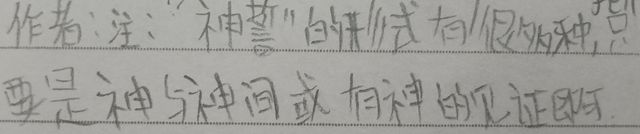 作者:注:“神誓”的形式有很多种,只
要是神与神间或有神的见证即可.